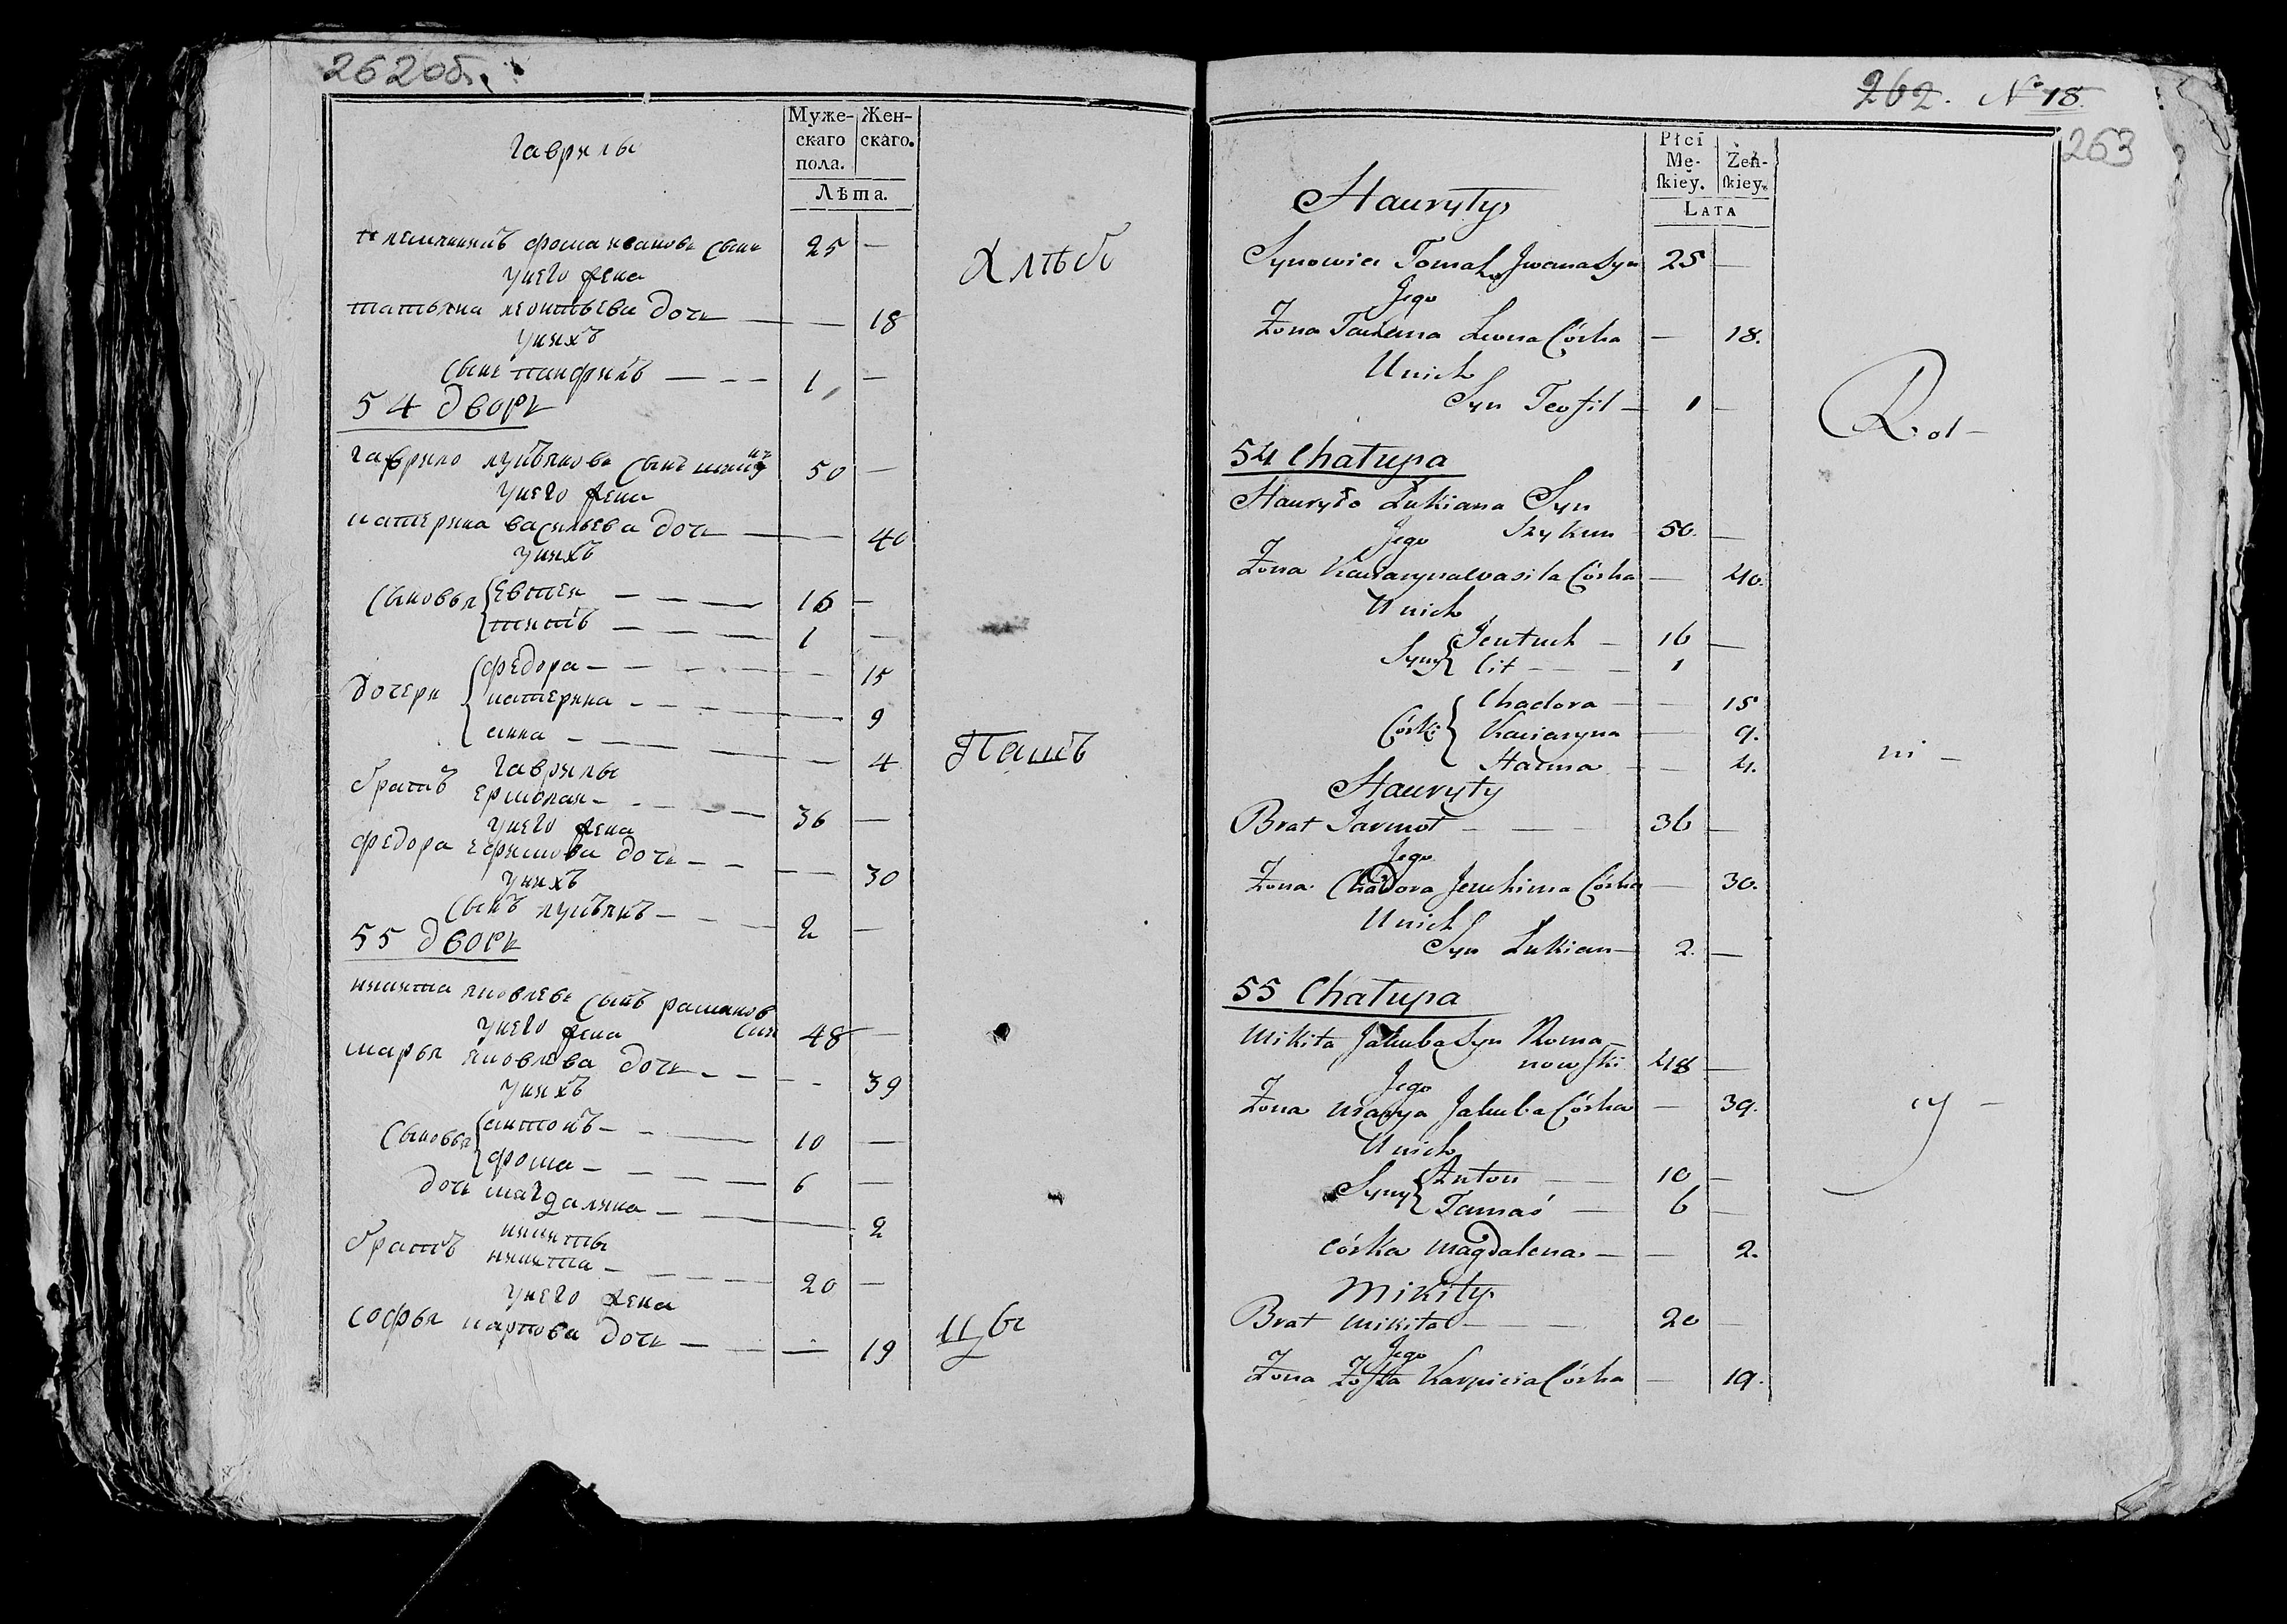 262об.
Муже- Жен-
скаго скаго.
пола.
Лѣта.
гаврилы
племянникъ фома иванова сынъ 25 —
унего жена
татьяна леонтьева дочь — — 18
унихъ
сынъ панфилъ — — — 1 —
54 дворъ
гаврило лукьянова сынъ 50 —
унего жена
катерина васильева дочь — — 40
унихъ
сыновья { евтей — — — 16 —
титъ — — — 1 —
дочери { федора — — — 15
катерина — — — 9
анна — — — 4
гаврилы
братъ ермолай — — — 36 —
унего жена
федора ефимова дочь — — — 30
унихъ
сынъ лукьянъ — — — 2 —
55 дворъ
никита яковлевъ сынъ раманов
ски 48 —
унего жена
марья яковлева дочь — — — 39
унихъ
сыновья { антонъ — — — 10 —
фома — — — 6 —
дочь магдалина — — — 2
никиты
братъ никита — — — 20 —
унего жена
софья карпова дочь — — — 19
Хлѣбо
Пашъ
цы
262. № 18.
263
Płci
Mę- Żeń-
skiey. skiey.
Lata
Hauryły
Synowiec Tomasz Jwana Syn 25 —
Jego
Żona Taciana Leona Córka — 18.
U nich
Syn Teofil — 1 —
54 Chałupa
Hauryło Łukiana Syn
Szykun 50. —
Jego
Żona Kaciaryna Wasila Córka — 40.
U nich
Syny { Jeutuch — 16 —
Cit — — — 1
Córki { Chadora — — 15
Kaciaryna — 9.
Hanna — — 4.
Hauryły
Brat Jarmoł — — — 36 —
Jego
Żona Chadora Jeuchima Córka — 30.
U nich
Syn Łukian — 2. —
55 Chałupa
Mikita Jakuba Syn Roma-
nowski 48 —
Jego
Żona Marya Jakuba Córka — 39.
U nich
Syny { Anton — — 10 —
Tamaś — 6 —
Córka Magdalena — — 2.
Mikity
Brat Mikita — — — 20 —
Jego
Żona Zofia Karpieia Córka — 19.
Rol —
ni —
cy —